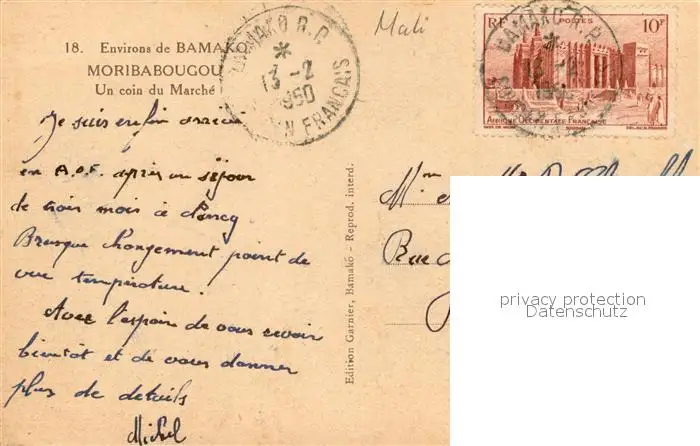 18. Environs de BAMAKO
MORIBABOUGOU
Un coin du Marché
BAMAKO R.P.
13-2
1950
SOUDAN FRANCAIS
Mali
RF POSTES 10F
AFRIQUE OCCIDENTALE FRANÇAISE
Je suis enfin arrivé
en A.O.F. après un séjour
de trois mois à
Brusque changement point de
vue température.
Avec l'espoir de vous revoir
bientôt et de vous donner
plus de détails
Michel
Edition Garnier, Bamako - Reprod. interd.
Rue
privacy protection
Datenschutz